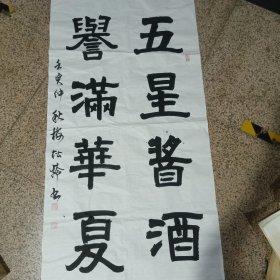 五星酱酒
譽滿華夏
壬寅仲秋